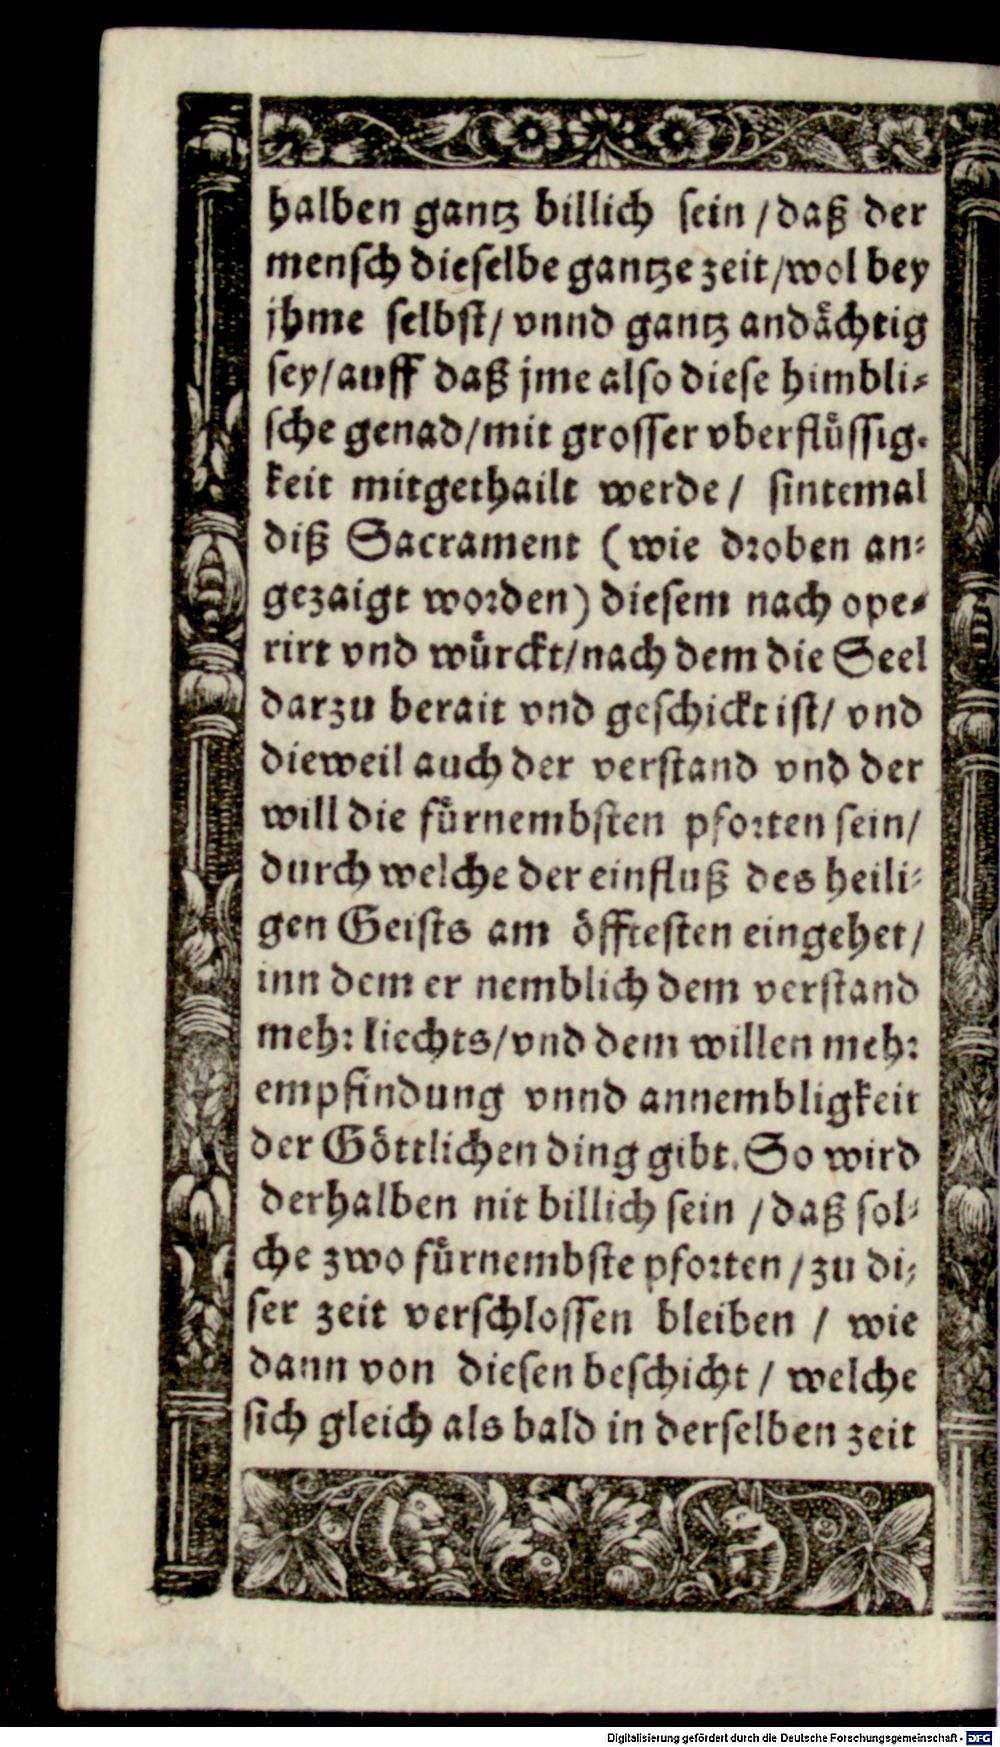 halben gantz billich sein / daß der
mensch dieselbe gantze zeit / wol bey
jhme selbst / vnnd gantz andaͤchtig
sey / auff daß jme also diese himbli⸗
sche genad / mit grosser vberfluͤssig⸗
keit mitgethailt werde / sintemal
diß Sacrament (wie droben an⸗
gezaigt worden) diesem nach ope⸗
rirt vnd wuͤrckt / nach dem die Seel
darzu berait vnd geschickt ist / vnd
dieweil auch der verstand vnd der
will die fuͤrnembsten pforten sein /
durch welche der einfluß des heili⸗
gen Geists am oͤfftesten eingehet /
inn dem er nemblich dem verstand
mehr liechts / vnd dem willen mehr
empfindung vnnd annembligkeit
der Goͤttlichen ding gibt. So wird
derhalben nit billich sein / daß sol⸗
che zwo fuͤrnembste pforten / zu di⸗
ser zeit verschlossen bleiben / wie
dann von diesen beschicht / welche
sich gleich als bald in derselben zeit
Digitalisierung gefördert durch die Deutsche Forschungsgemeinschaft - DFG